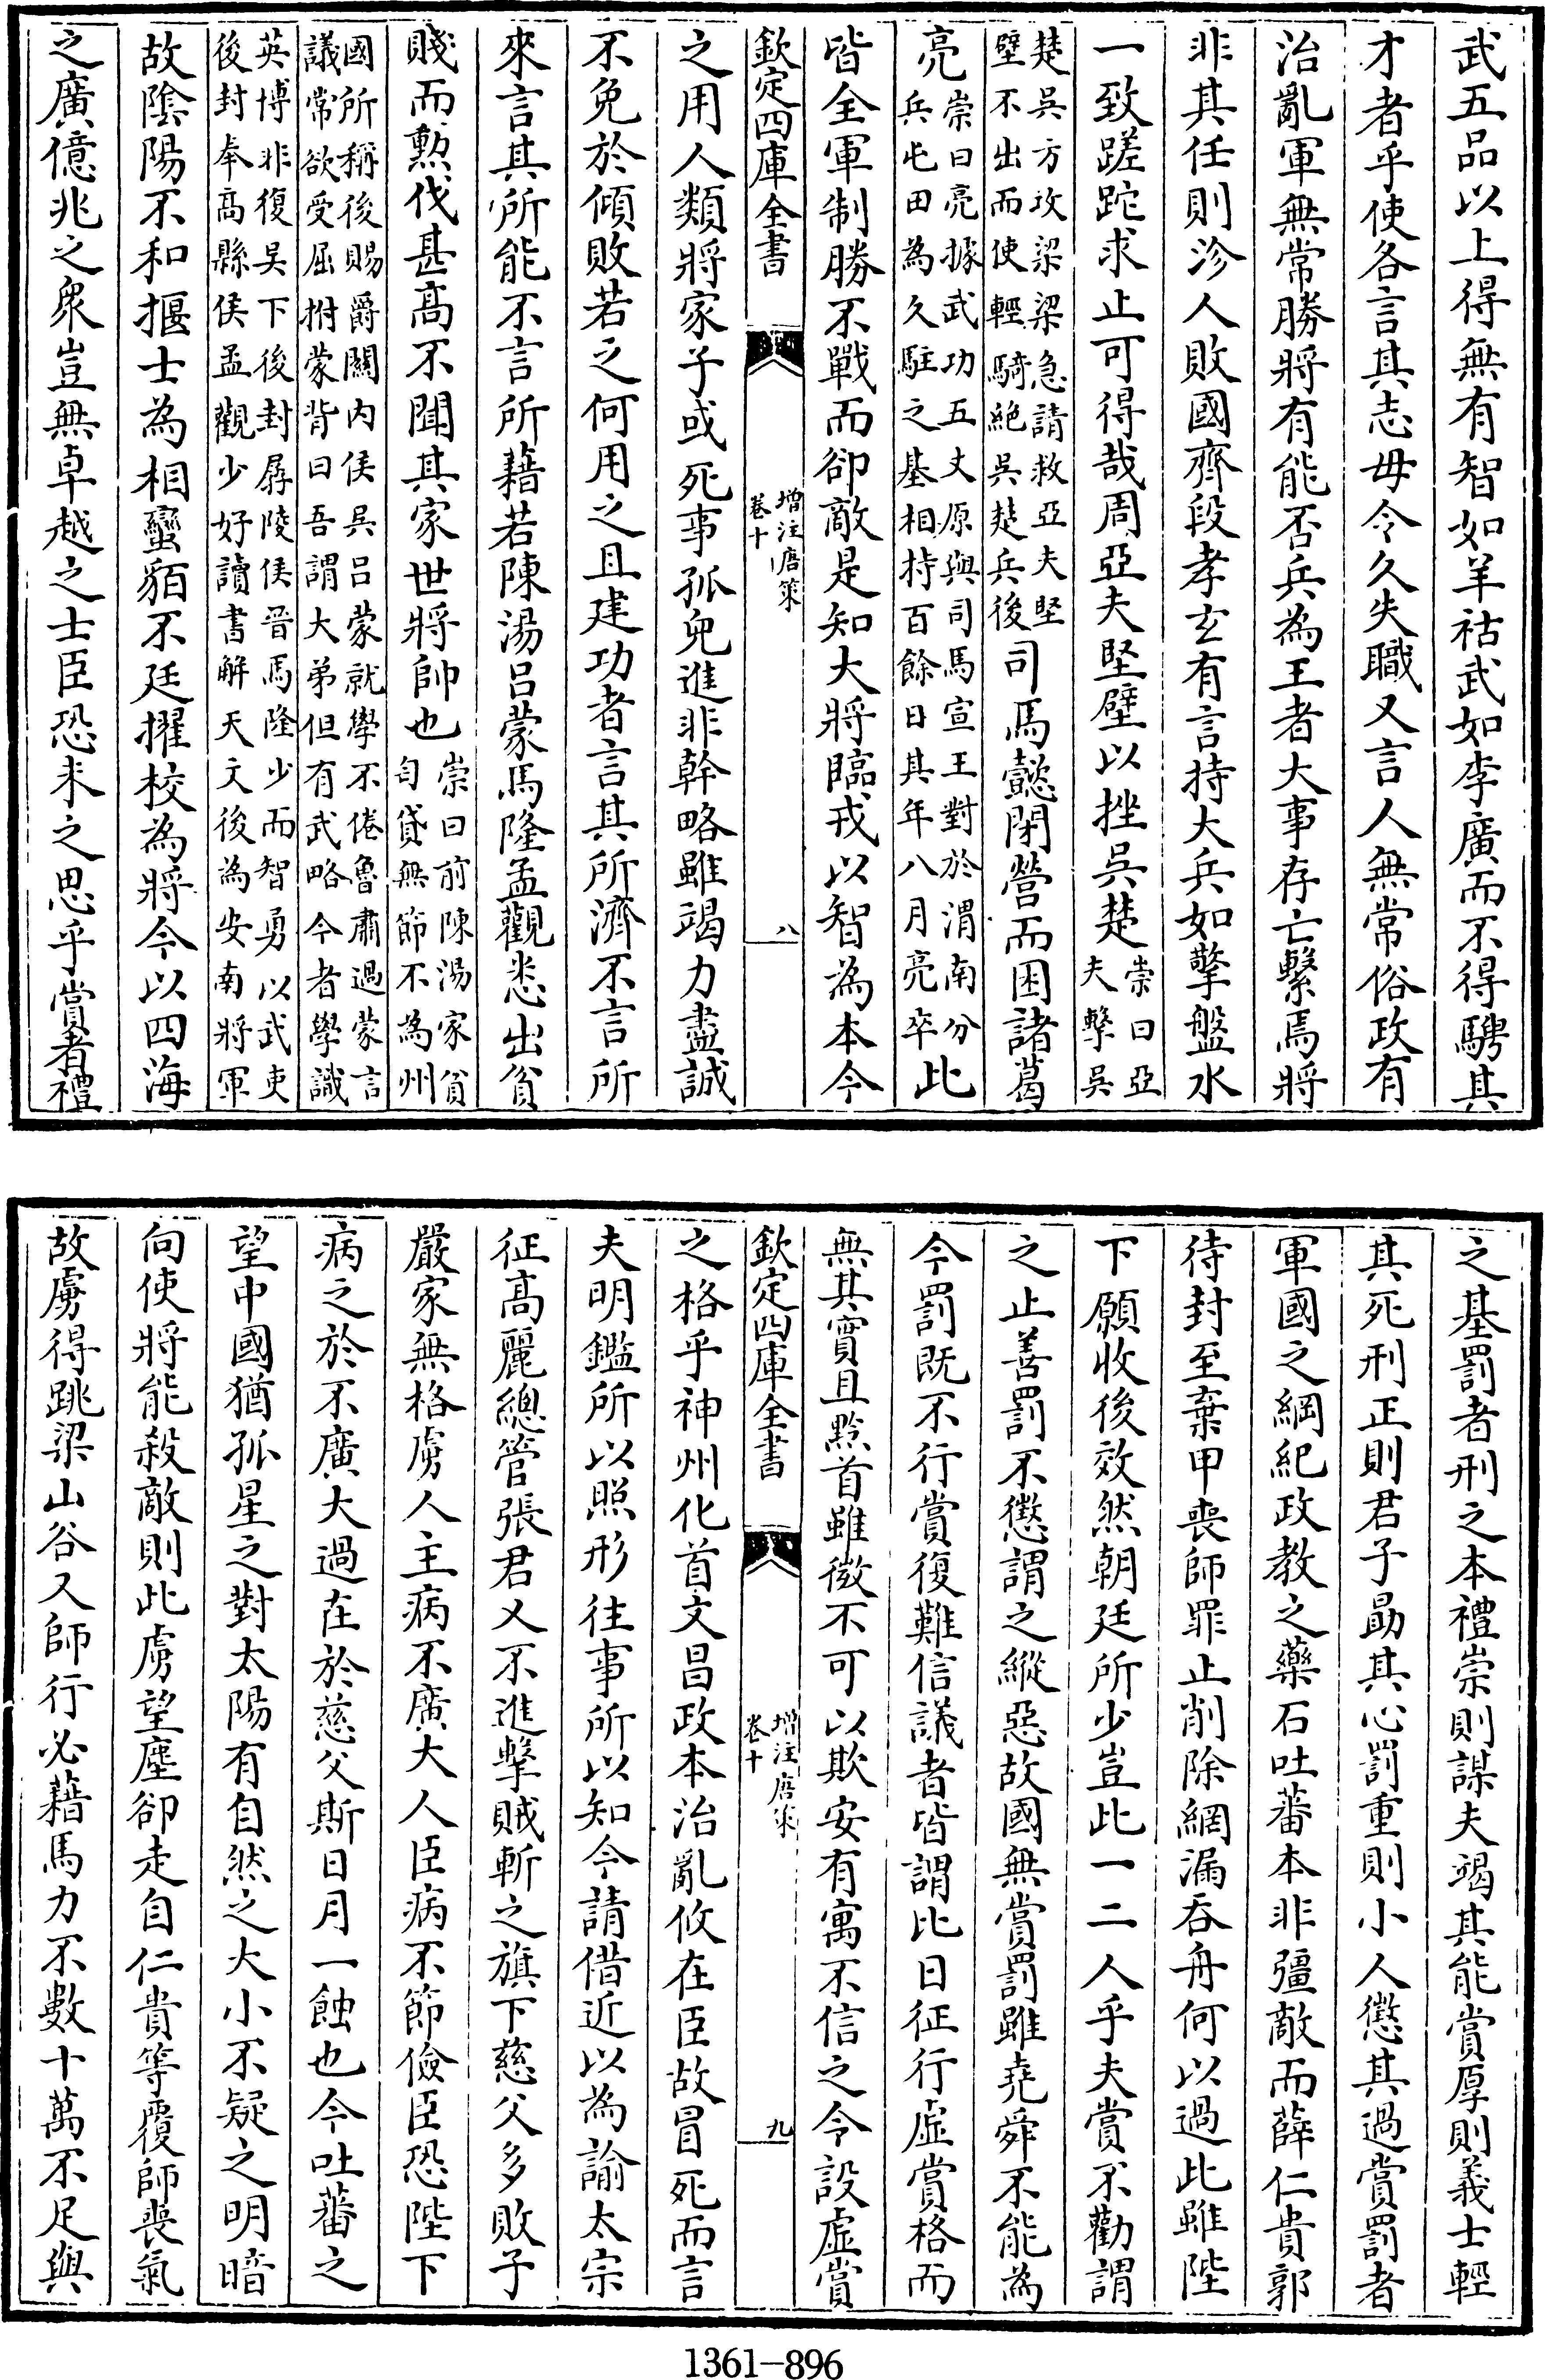 武五品以上得無有智如羊祜武如李廣而不得騁其
才者乎使各言其志毋令久失職又言人無常俗政有
治亂軍無常勝將有能否兵為王者大事存亡繫焉將
非其任則殄人敗國齊段孝玄有言持大兵如擎盤水
一致蹉跎求止可得哉周亞夫堅壁以挫吳楚崇曰亞夫擊吳
楚吳方攻梁梁急請救亞夫堅壁不出而使輕騎絶吳楚兵後司馬懿閉營而困諸葛
亮崇曰亮據武功五丈原與司馬宣王對於渭南分兵屯田為久駐之基相持百餘日其年八月亮卒此
皆全軍制勝不戰而卻敵是知大將臨戎以智為本今
欽定四庫全書 增注唐策 卷十 八
之用人類將家子或死事孤兒進非幹略雖竭力盡誠
不免於傾敗若之何用之且建功者言其所濟不言所
來言其所能不言所藉若陳湯呂蒙馬隆孟觀悉出貧
賤而勲伐甚高不聞其家世將帥也崇曰前陳湯家貧匄貸無節不為州
國所稱後賜爵關内侯吳呂蒙就學不倦魯肅過蒙言議常欲受屈拊蒙背曰吾謂大弟但有武略今者學識
英博非復吴下後封孱陵侯晉馬隆少而智勇以武吏後封奉高縣侯孟觀少好讀書解天文後為安南將軍
故陰陽不和揠士為相蠻貊不廷擢校為將今以四海
之廣億兆之衆豈無卓越之士臣恐未之思乎賞者禮
之基罰者刑之本禮崇則謀夫竭其能賞厚則義士輕
其死刑正則君子勗其心罰重則小人懲其過賞罰者
軍國之綱紀政教之藥石吐蕃本非彊敵而薛仁貴郭
待封至棄甲喪師罪止削除網漏吞舟何以過此雖陛
下願收後效然朝廷所少豈此一二人乎夫賞不勸謂
之止善罰不懲謂之縱惡故國無賞罰雖堯舜不能為
今罰既不行賞復難信議者皆謂比日征行虛賞格而
無其實且黔首雖微不可以欺安有寓不信之令設虛賞
欽定四庫全書 增注唐策 卷十 九
之格乎神州化首文昌政本治亂攸在臣故冒死而言
夫明鑑所以照形往事所以知今請借近以為諭太宗
征高麗總管張君乂不進擊賊斬之旗下慈父多敗子
嚴家無格虜人主病不廣大人臣病不節儉臣恐陛下
病之於不廣大過在於慈父斯日月一蝕也今吐蕃之
望中國猶孤星之對太陽有自然之大小不疑之明暗
向使將能殺敵則此虜望塵卻走自仁貴等覆師喪氣
故虜得跳梁山谷又師行必藉馬力不數十萬不足與
1361-896